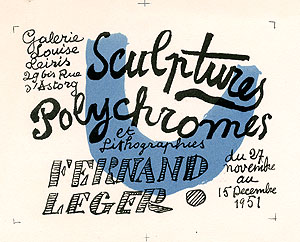 Galerie
Louise
Leiris
29 bis Rue
d'Astorg
Sculptures
Polychromes
et
Lithographies
FERNAND
LEGER
du 27
novembre
au
15 Decembre
1951